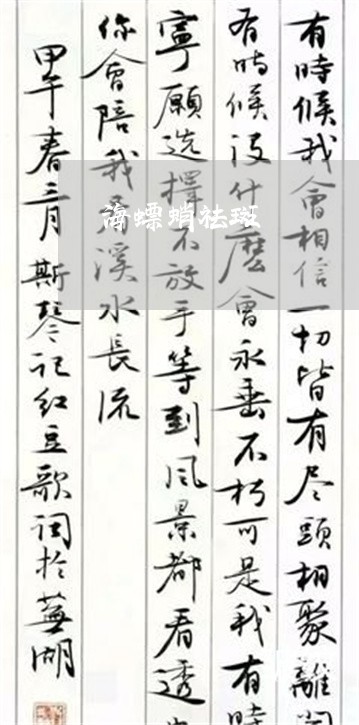 有時候我會相信一切皆有尽頭相聚離開
有時候没什麼會永垂不朽可是我有時
寧願选擇不放手等到风景都看透
你會陪我看溪水長流
甲午春三月斯琴记红豆歌词於蕪湖
海螵蛸祛斑